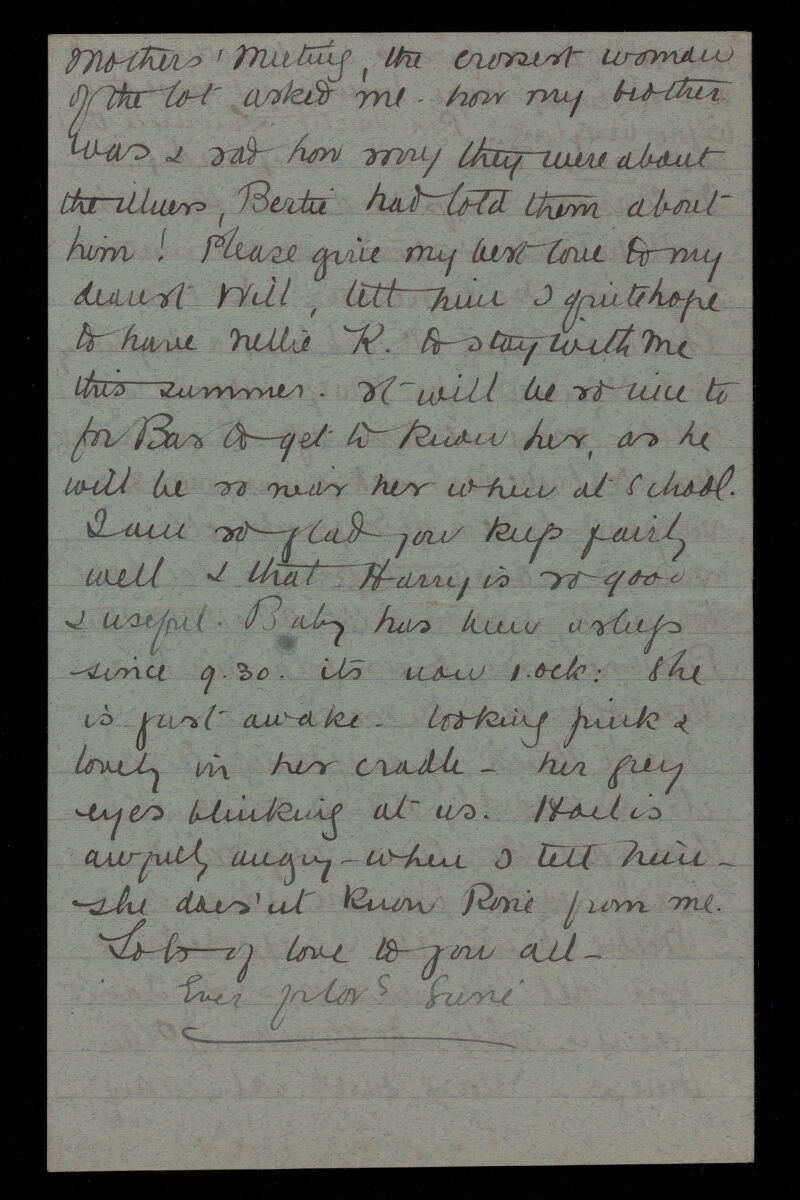 Mothers' Meeting, the crossest woman
of the lot asked me - how my brother
was & sad how sorry they were about
the illness, Bertie had told them about
him! Please give my best love to my
dearest Will, tell him I quite hope
to have Nellie K. to stay with me
this summer. It will be so nice to
for Bar to get to know her, as he
will be so near her when at School.
I am so glad you keep fairly
well & that Harry is so good
& useful. Baby has been asleep
since 9.30. its now 1.ock: She
is just awake - looking pink &
lovely in her cradle - her grey
eyes blinking at us. is
awfully angry - when I tell him -
she does'nt know Rosie from me.
Lots of love to you all -
Ever